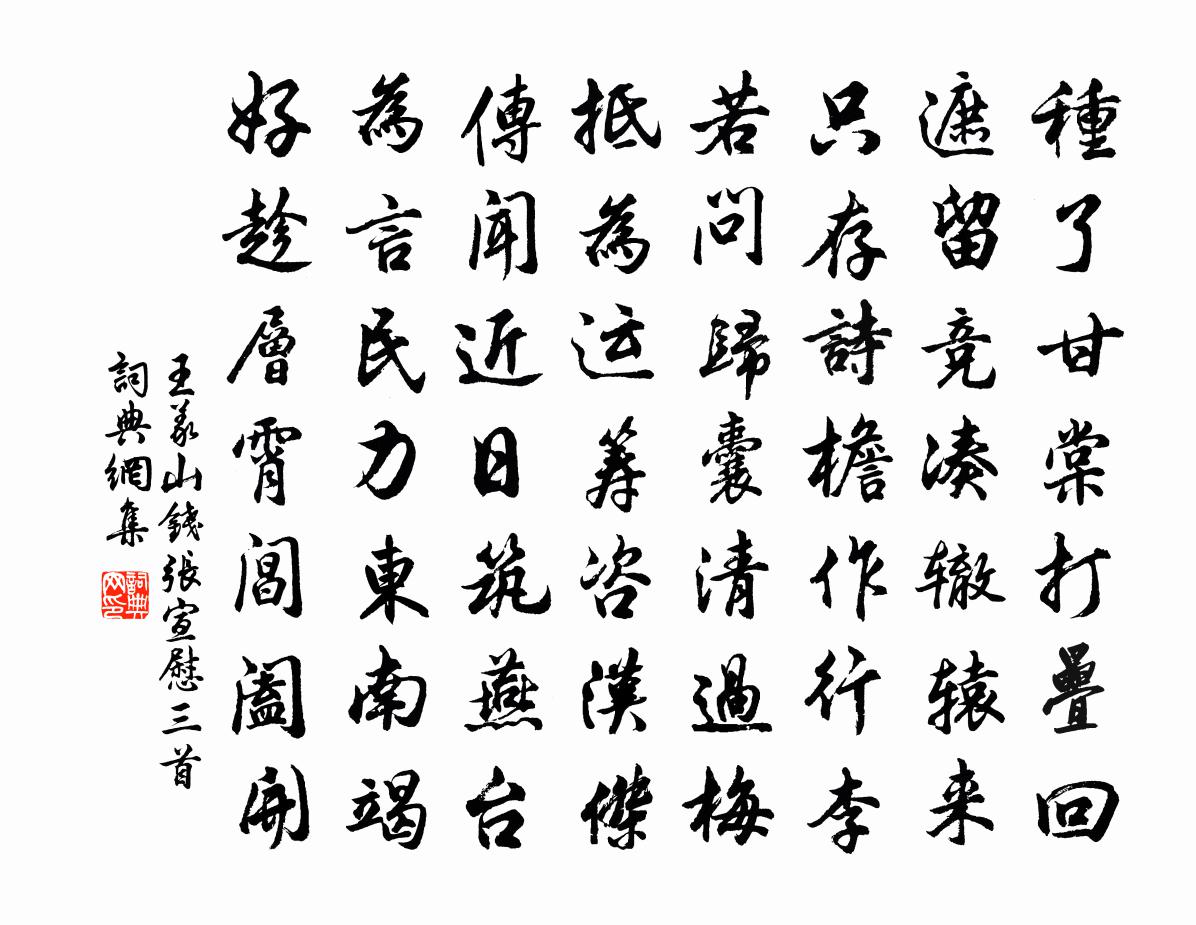 種了甘棠打疊回
遮留竞湊辙辕来
只存詩檐作行李
若問歸囊清過梅
抵為运筹咨漢傑
傳聞近日筑燕台
為言民力東南竭
好趁層霄閶闔開
王义山錢張宣慰三首
詞典網集
詞典网印